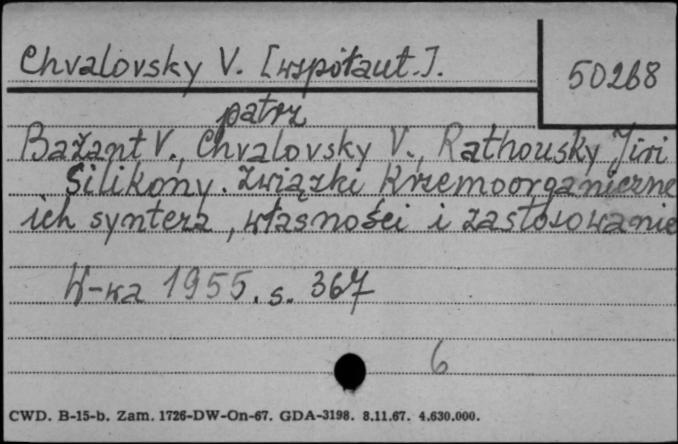 Chvalovsky V. [współaut.].
50268
patrz
Bažant V., Chvalovsky V., Rathousky Jiri
Silikony. Związki krzemoorganiczne
ich synteza, własności i zastosowanie
W-wa 1955. s. 367
6
CWD. B-15-b. Zam. 1726-DW-On-67. GDA-3198. 8.11.67. 4.630.000.